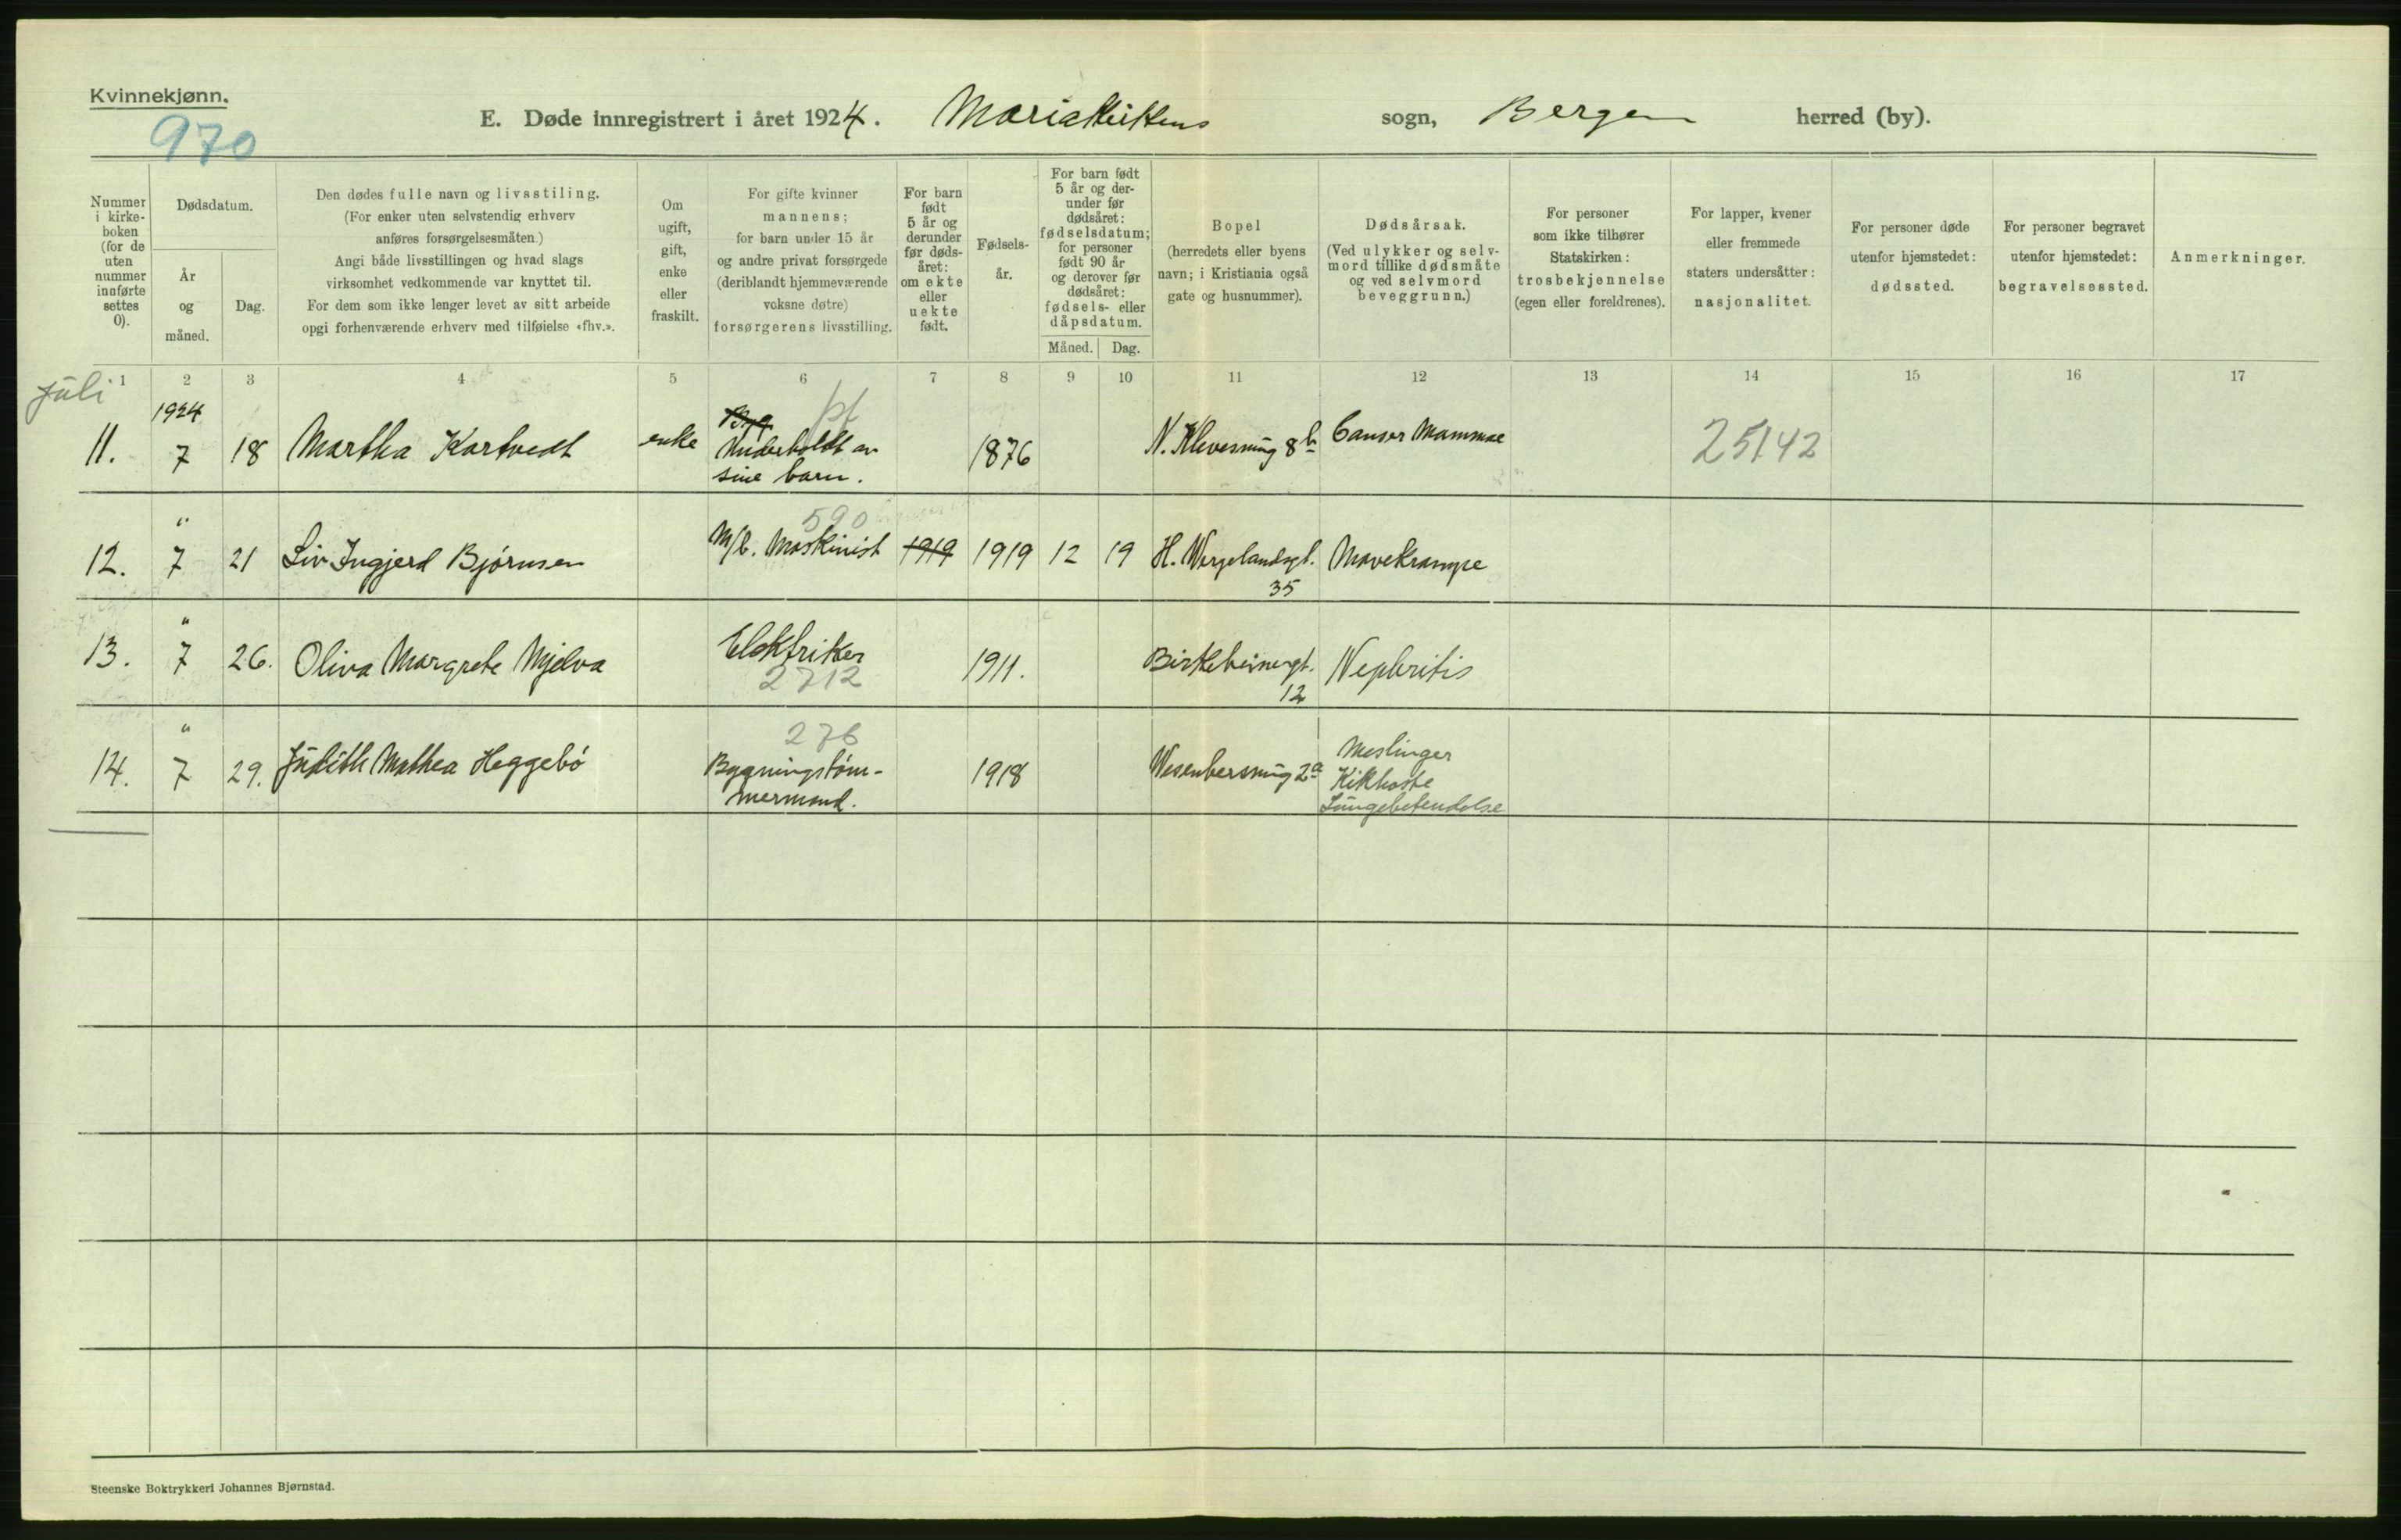 Kvinnekjønn.
970
E. Døde innregistrert i året 1924. Mariakirkens sogn, Bergen herred (by).
Nummer i kirke- boken (for de uten nummer innførte settes 0).
Dødsdatum.
År og måned.
Dag.
Den dødes fulle navn og livsstiling.
(For enker uten selvstendig erhverv
anføres forsørgelsesmåten.)
Angi både livsstillingen og hvad slags
virksomhet vedkommende var knyttet til.
For dem som ikke lenger levet av sitt arbeide
opgi forhenværende erhverv med tilføielse «fhv.».
Om ugift, gift, enke eller fraskilt.
For gifte kvinner
mannens;
for barn under 15 år
og andre privat forsørgede
(deriblandt hjemmeværende
voksne døtre)
forsørgerens livsstilling.
For barn født 5 år og derunder før døds- året: om ekte eller uekte født.
Fødsels- år.
For barn født 5 år og der- under før dødsåret: fødselsdatum; for personer født 90 år og derover før dødsåret: fødsels- eller dåpsdatum.
Måned. Dag.
Bopel
(herredets eller byens
navn; i Kristiania også
gate og husnummer).
Dødsårsak.
(Ved ulykker og selv-
mord tillike dødsmåte
og ved selvmord
beveggrunn.)
For personer
som ikke tilhører
Statskirken:
trosbekjennelse
(egen eller foreldrenes).
For lapper, kvener
eller fremmede
staters undersåtter:
nasjonalitet.
For personer døde
utenfor hjemstedet:
dødssted.
For personer begravet
utenfor hjemstedet:
begravelsessted.
Anmerkninger.
1 2 3 4 5 6 7 8 9 10 11 12 13 14 15 16 17
Juli
1924
11. 7 18 Martha Kartvedt enke pf Underholdt av sine barn. 1876 N. Klevesmug 8b Cancer Mammae 25142
12. " 7 21 Liv Ingjerd Bjørnsen 590 M/b. Maskinist 1919 1919 12 19 H. Wergelandsgt. 35 Mavekrampe
13. " 7 26. Oliva Margrete Mjelva Elektriker 2712 1911. Birkebeinergt. 12 Nephritis
14. " 7 29. Judith Mathea Heggebø 276 Bygningstøm- mermand. 1918 Wesenbersmug 2a Meslinger Kikhoste Lungebetendelse
Steenske Boktrykkeri Johannes Bjørnstad.